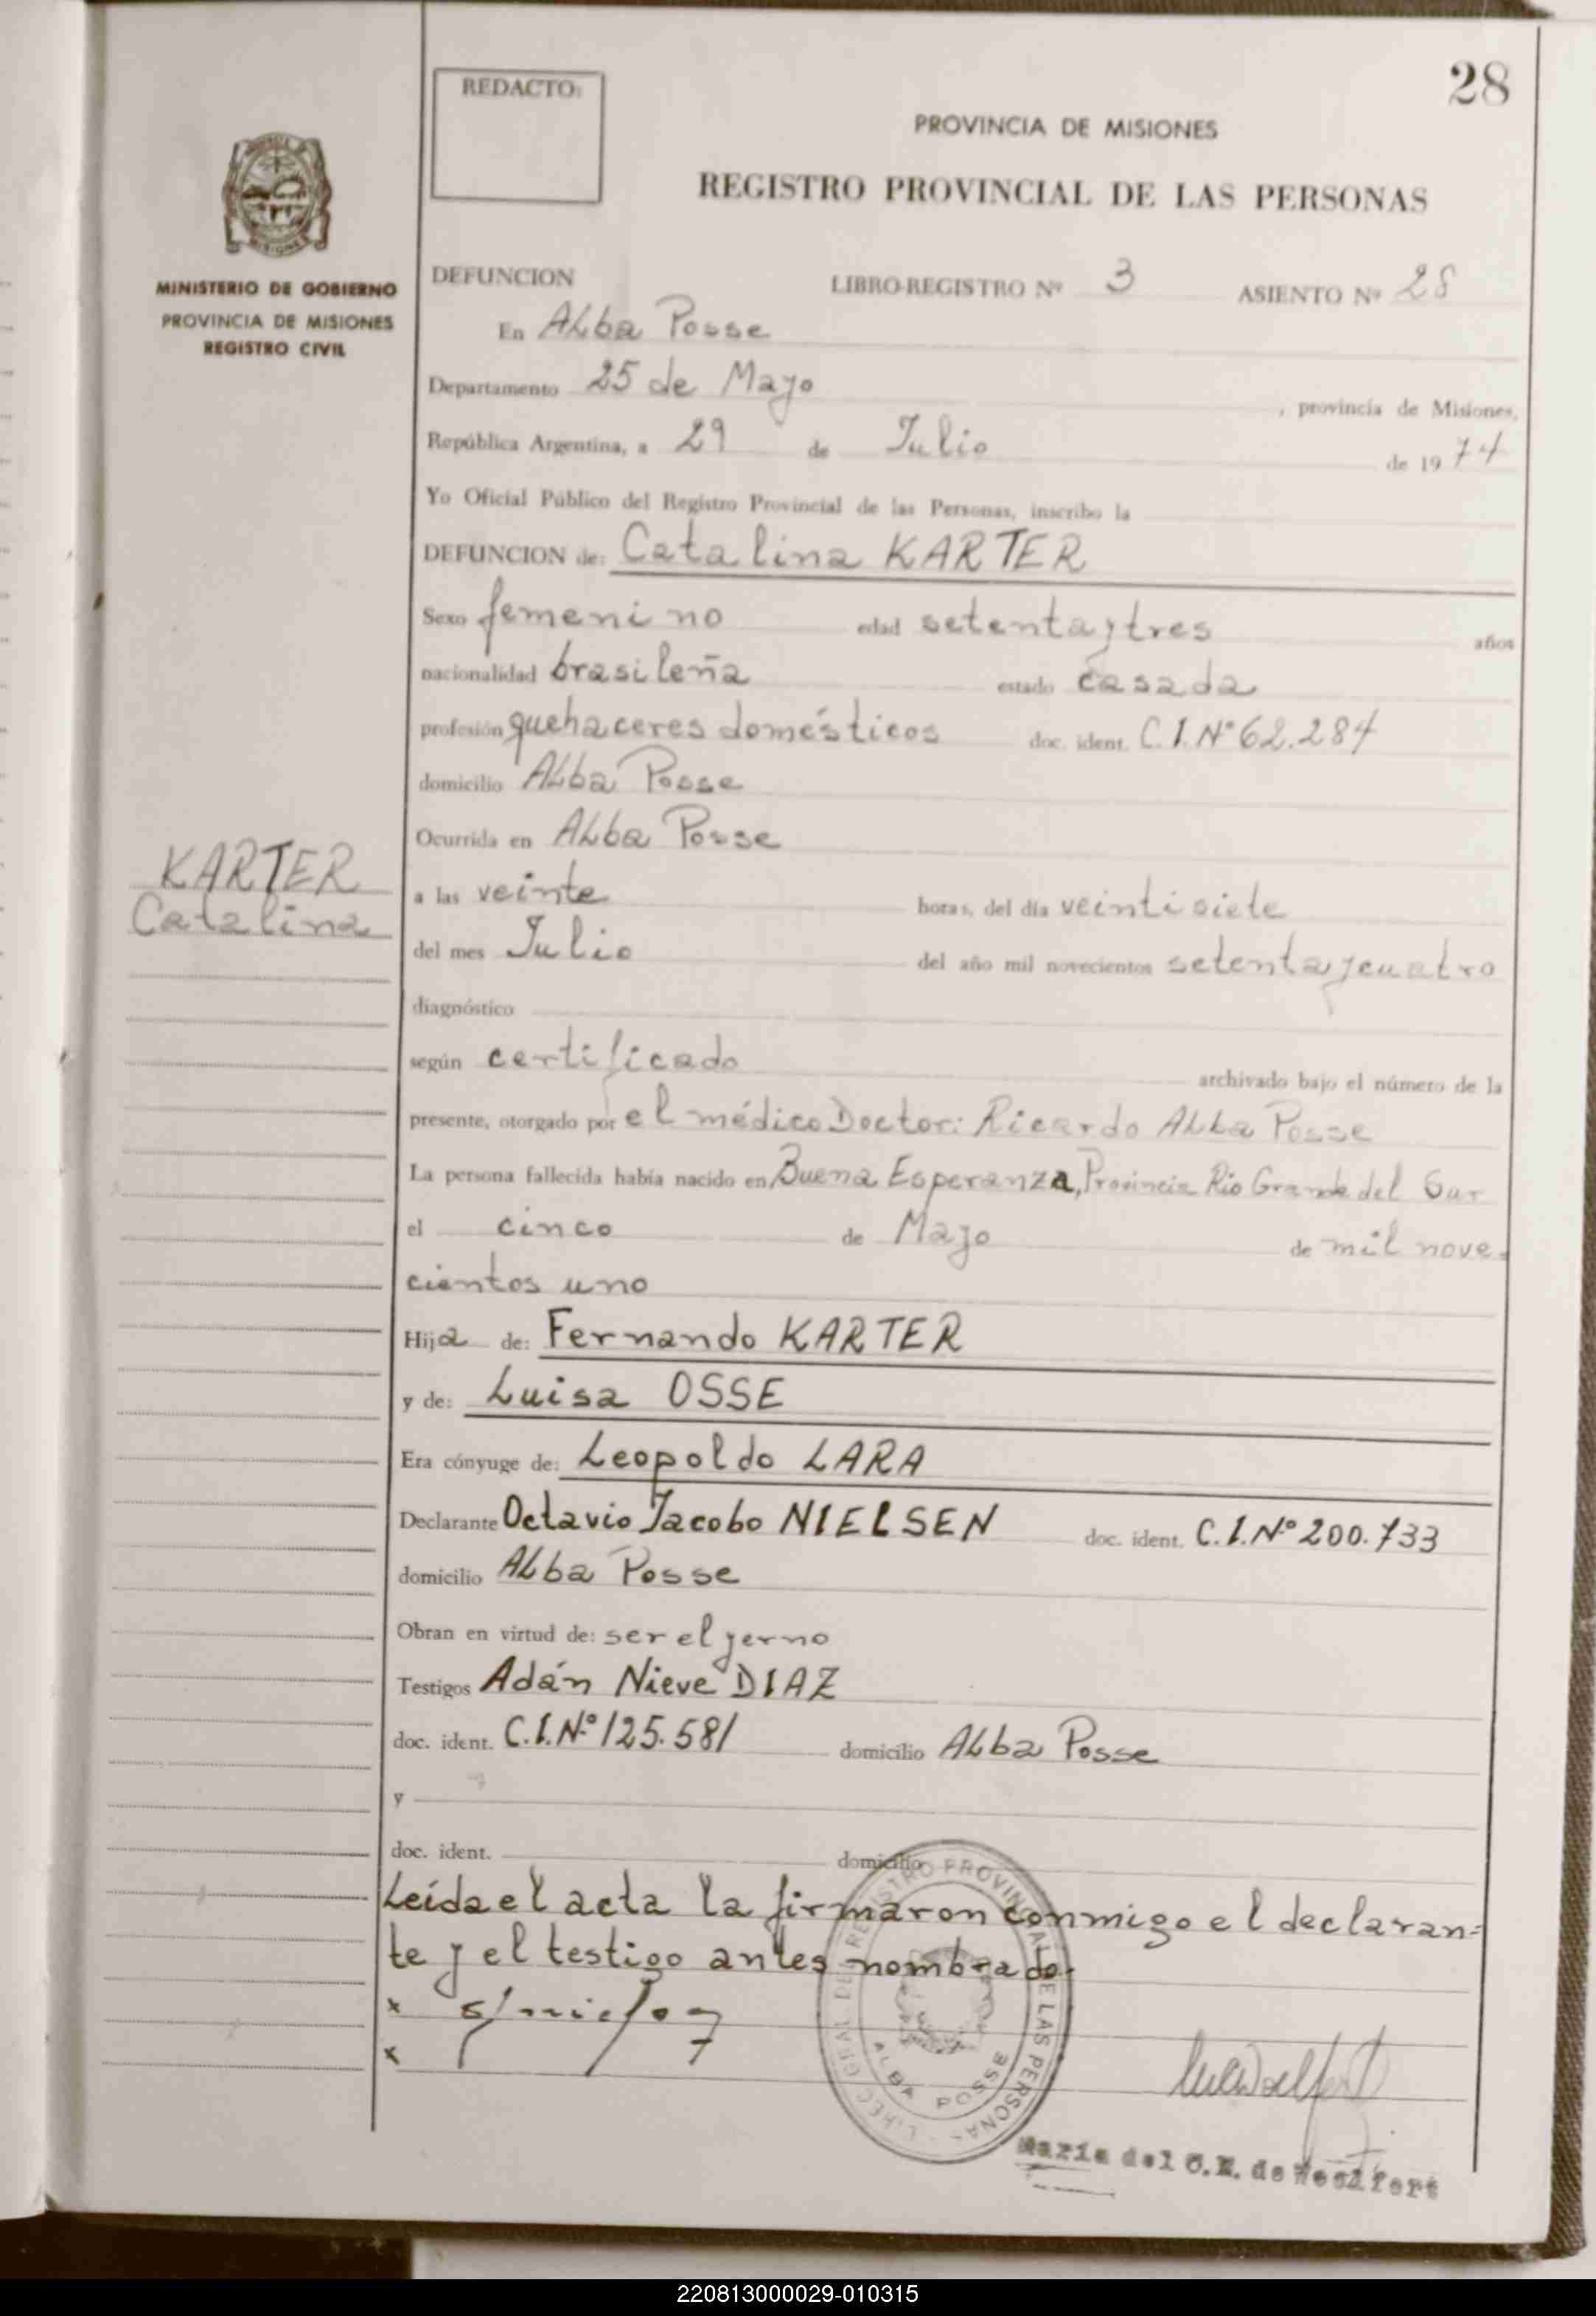 28
REDACTO:
PROVINCIA DE MISIONES
REGISTRO PROVINCIAL DE LAS PERSONAS
MINISTERIO DE GOBIERNO
PROVINCIA DE MISIONES
REGISTRO CIVIL
DEFUNCION LIBRO-REGISTRO Nº 3 ASIENTO Nº 28
En ALba Posse
Departamento 25 de Mayo, provincia de Misiones,
República Argentina, a 29 de Julio de 1974
Yo Oficial Público del Registro Provincial de las Personas, inscribo la
DEFUNCION de: Catalina KARTER
Sexo femenino edad setenta y tres años
nacionalidad brasileña estado casada
profesión quehaceres domésticos doc. ident. C.I.Nº 62.284
domicilio ALba Posse
Ocurrida en ALba Posse
KARTER
Catalina
a las veinte horas, del día veintisiete
del mes Julio del año mil novecientos setenta y cuatro
diagnóstico
según certificado archivado bajo el número de la
presente, otorgado por el médico Doctor: Ricardo ALba Posse
La persona fallecida había nacido en Buena Esperanza, Provincia Rio Grande del Sur
el cinco de Mayo de mil nove-
cientos uno
Hija de: Fernando KARTER
y de: Luisa OSSE
Era cónyuge de: Leopoldo LARA
Declarante Octavio Jacobo NIELSEN doc. ident. C.I.Nº 200.733
domicilio ALba Posse
Obran en virtud de: ser el yerno
Testigos Adán Nieve DIAZ
doc. ident. C.I.Nº 125.581 domicilio ALba Posse
y
doc. ident. domicilio
Leída el acta la firmaron conmigo el declaran=
te y el testigo antes nombrado.
x
x
REGISTRO PROVINCIAL DE LAS PERSONAS
ALBA POSSE
María del C.
220813000029-010315